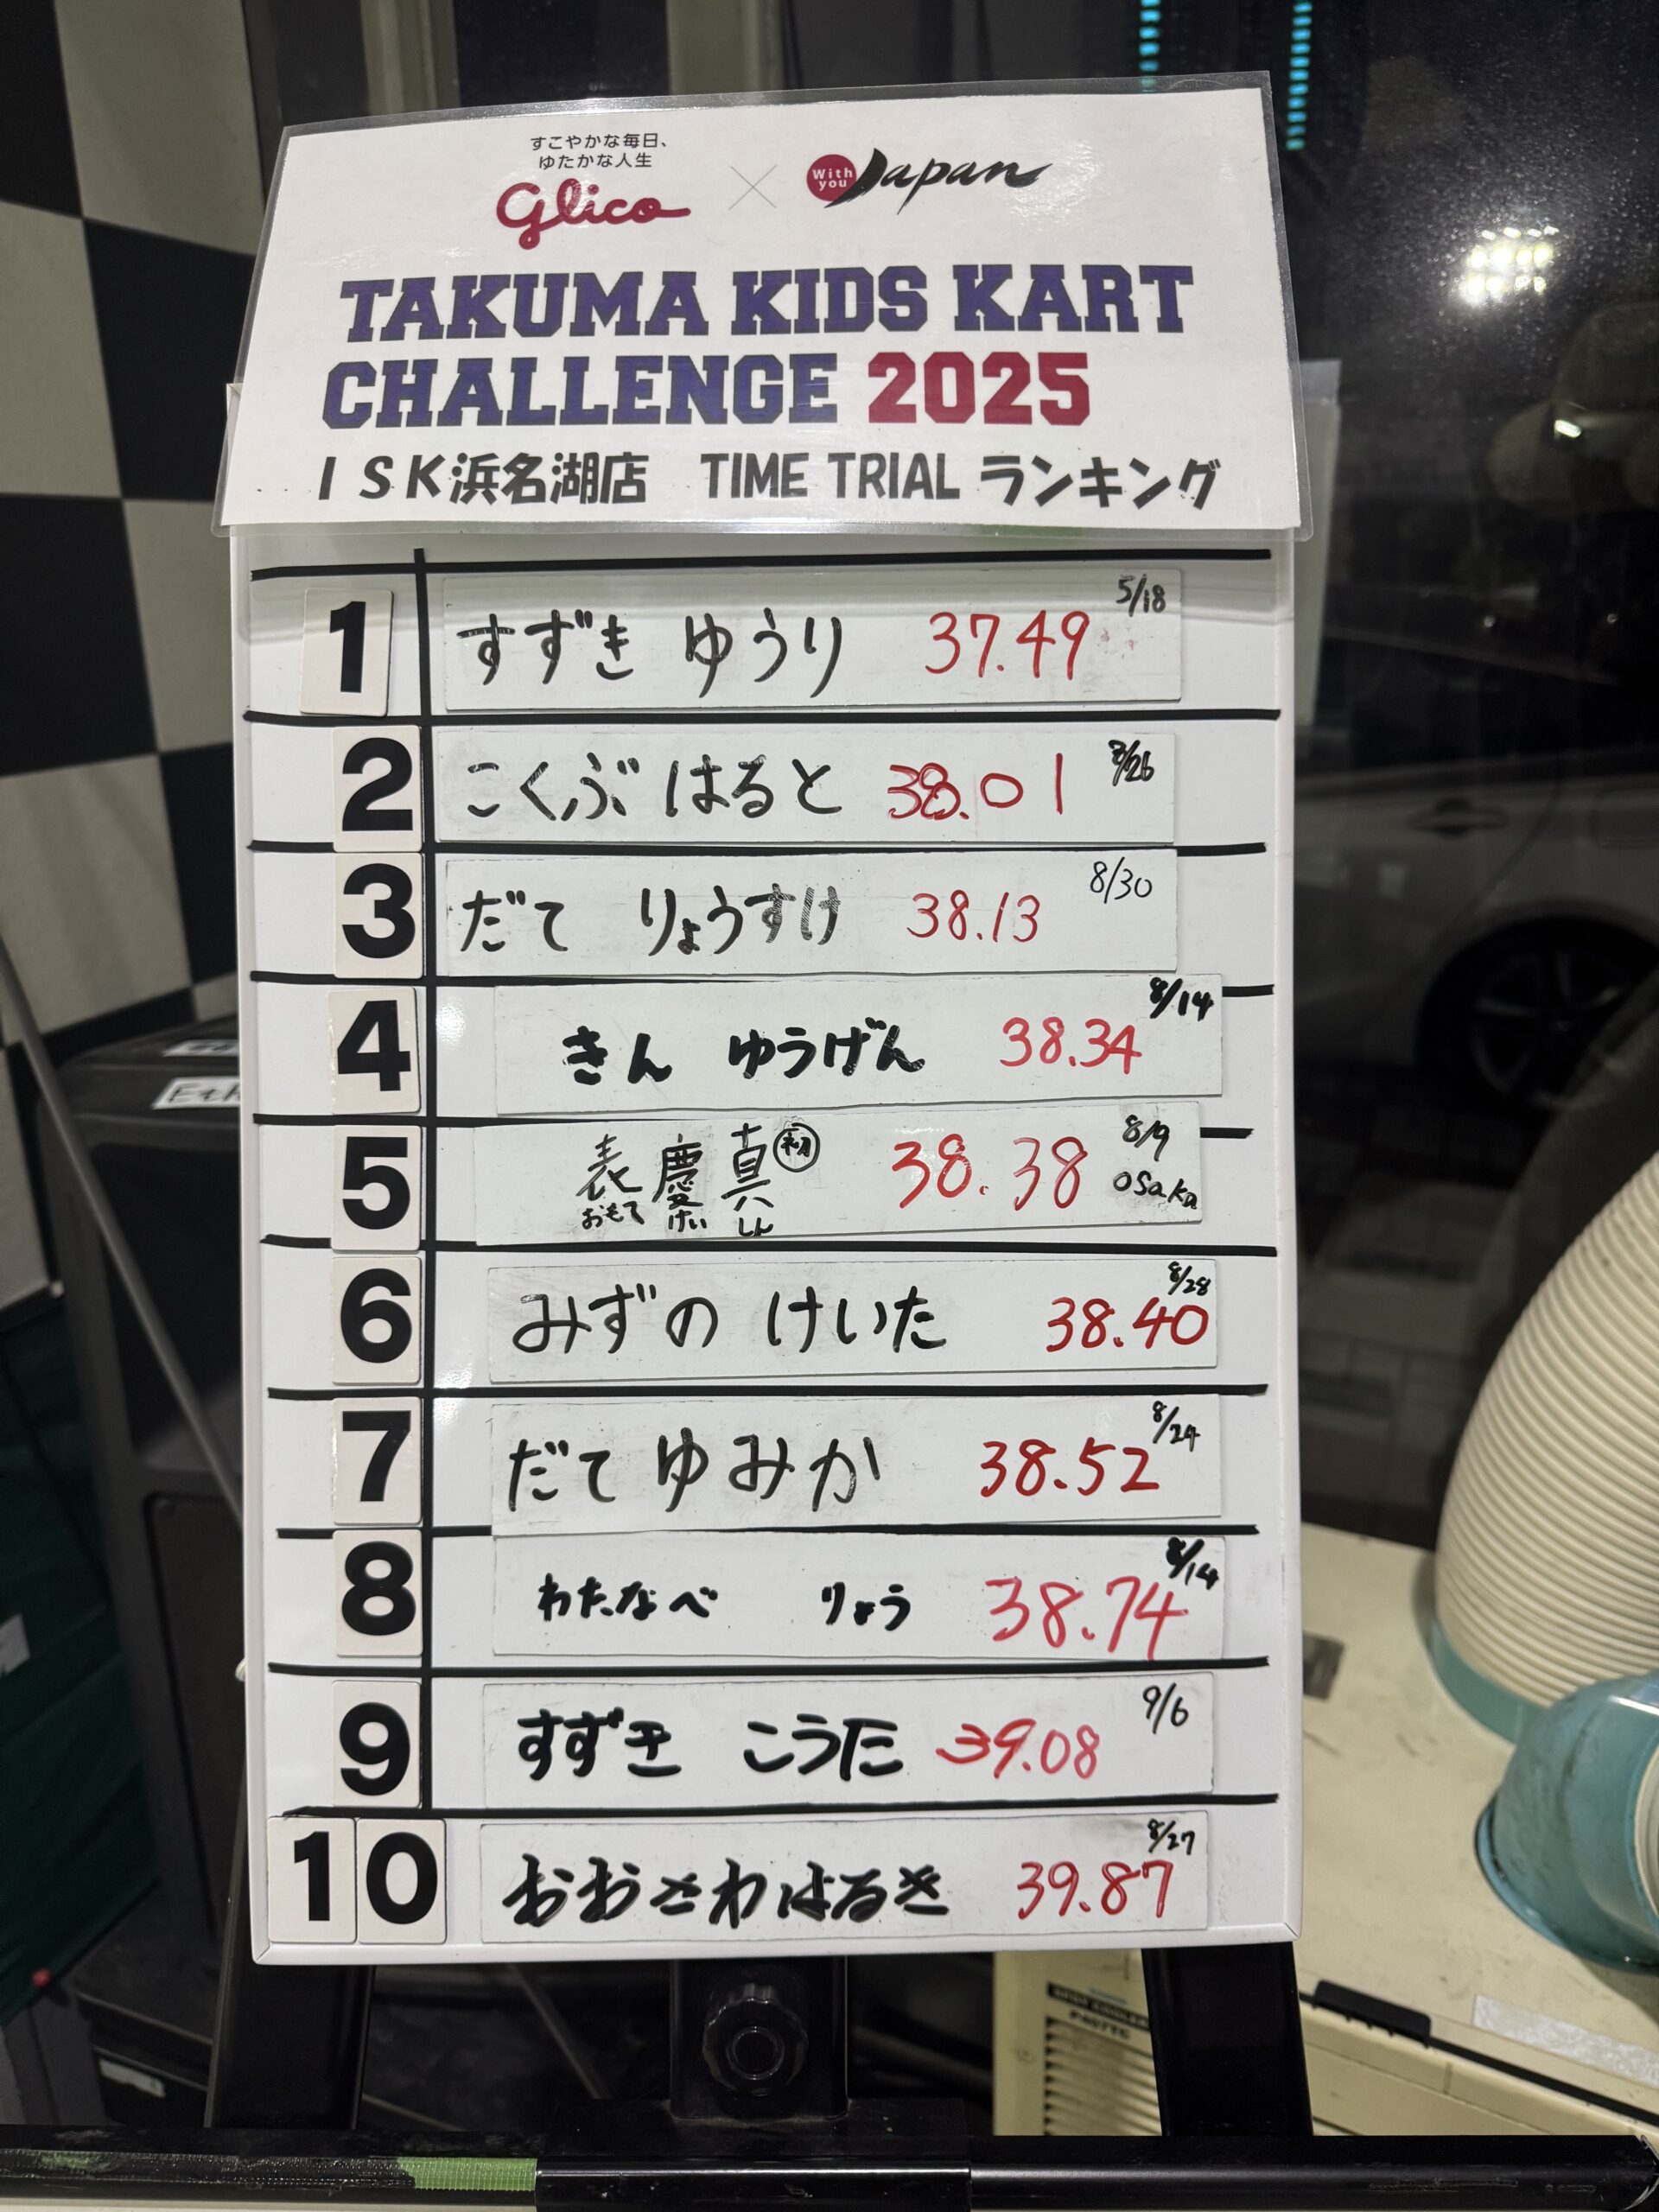 すこやかな毎日、
ゆたかな人生
Glico × With you Japan
TAKUMA KIDS KART
CHALLENGE 2025
ISK浜名湖店 TIME TRIAL ランキング
1 すずき ゆうり 37.49 5/18
2 こくぶ はると 38.01 /26
3 だて りょうすけ 38.13 8/30
4 きん ゆうげん 38.34 8/14
5 表 慶 真 初 38.38 8/9
おもて けい しん osaka
6 みずの けいた 38.40 8/28
7 だて ゆみか 38.52 8/24
8 わたなべ りょう 38.74 8/14
9 すずき こうた 39.08 9/6
10 おおさわはるき 39.87 8/27